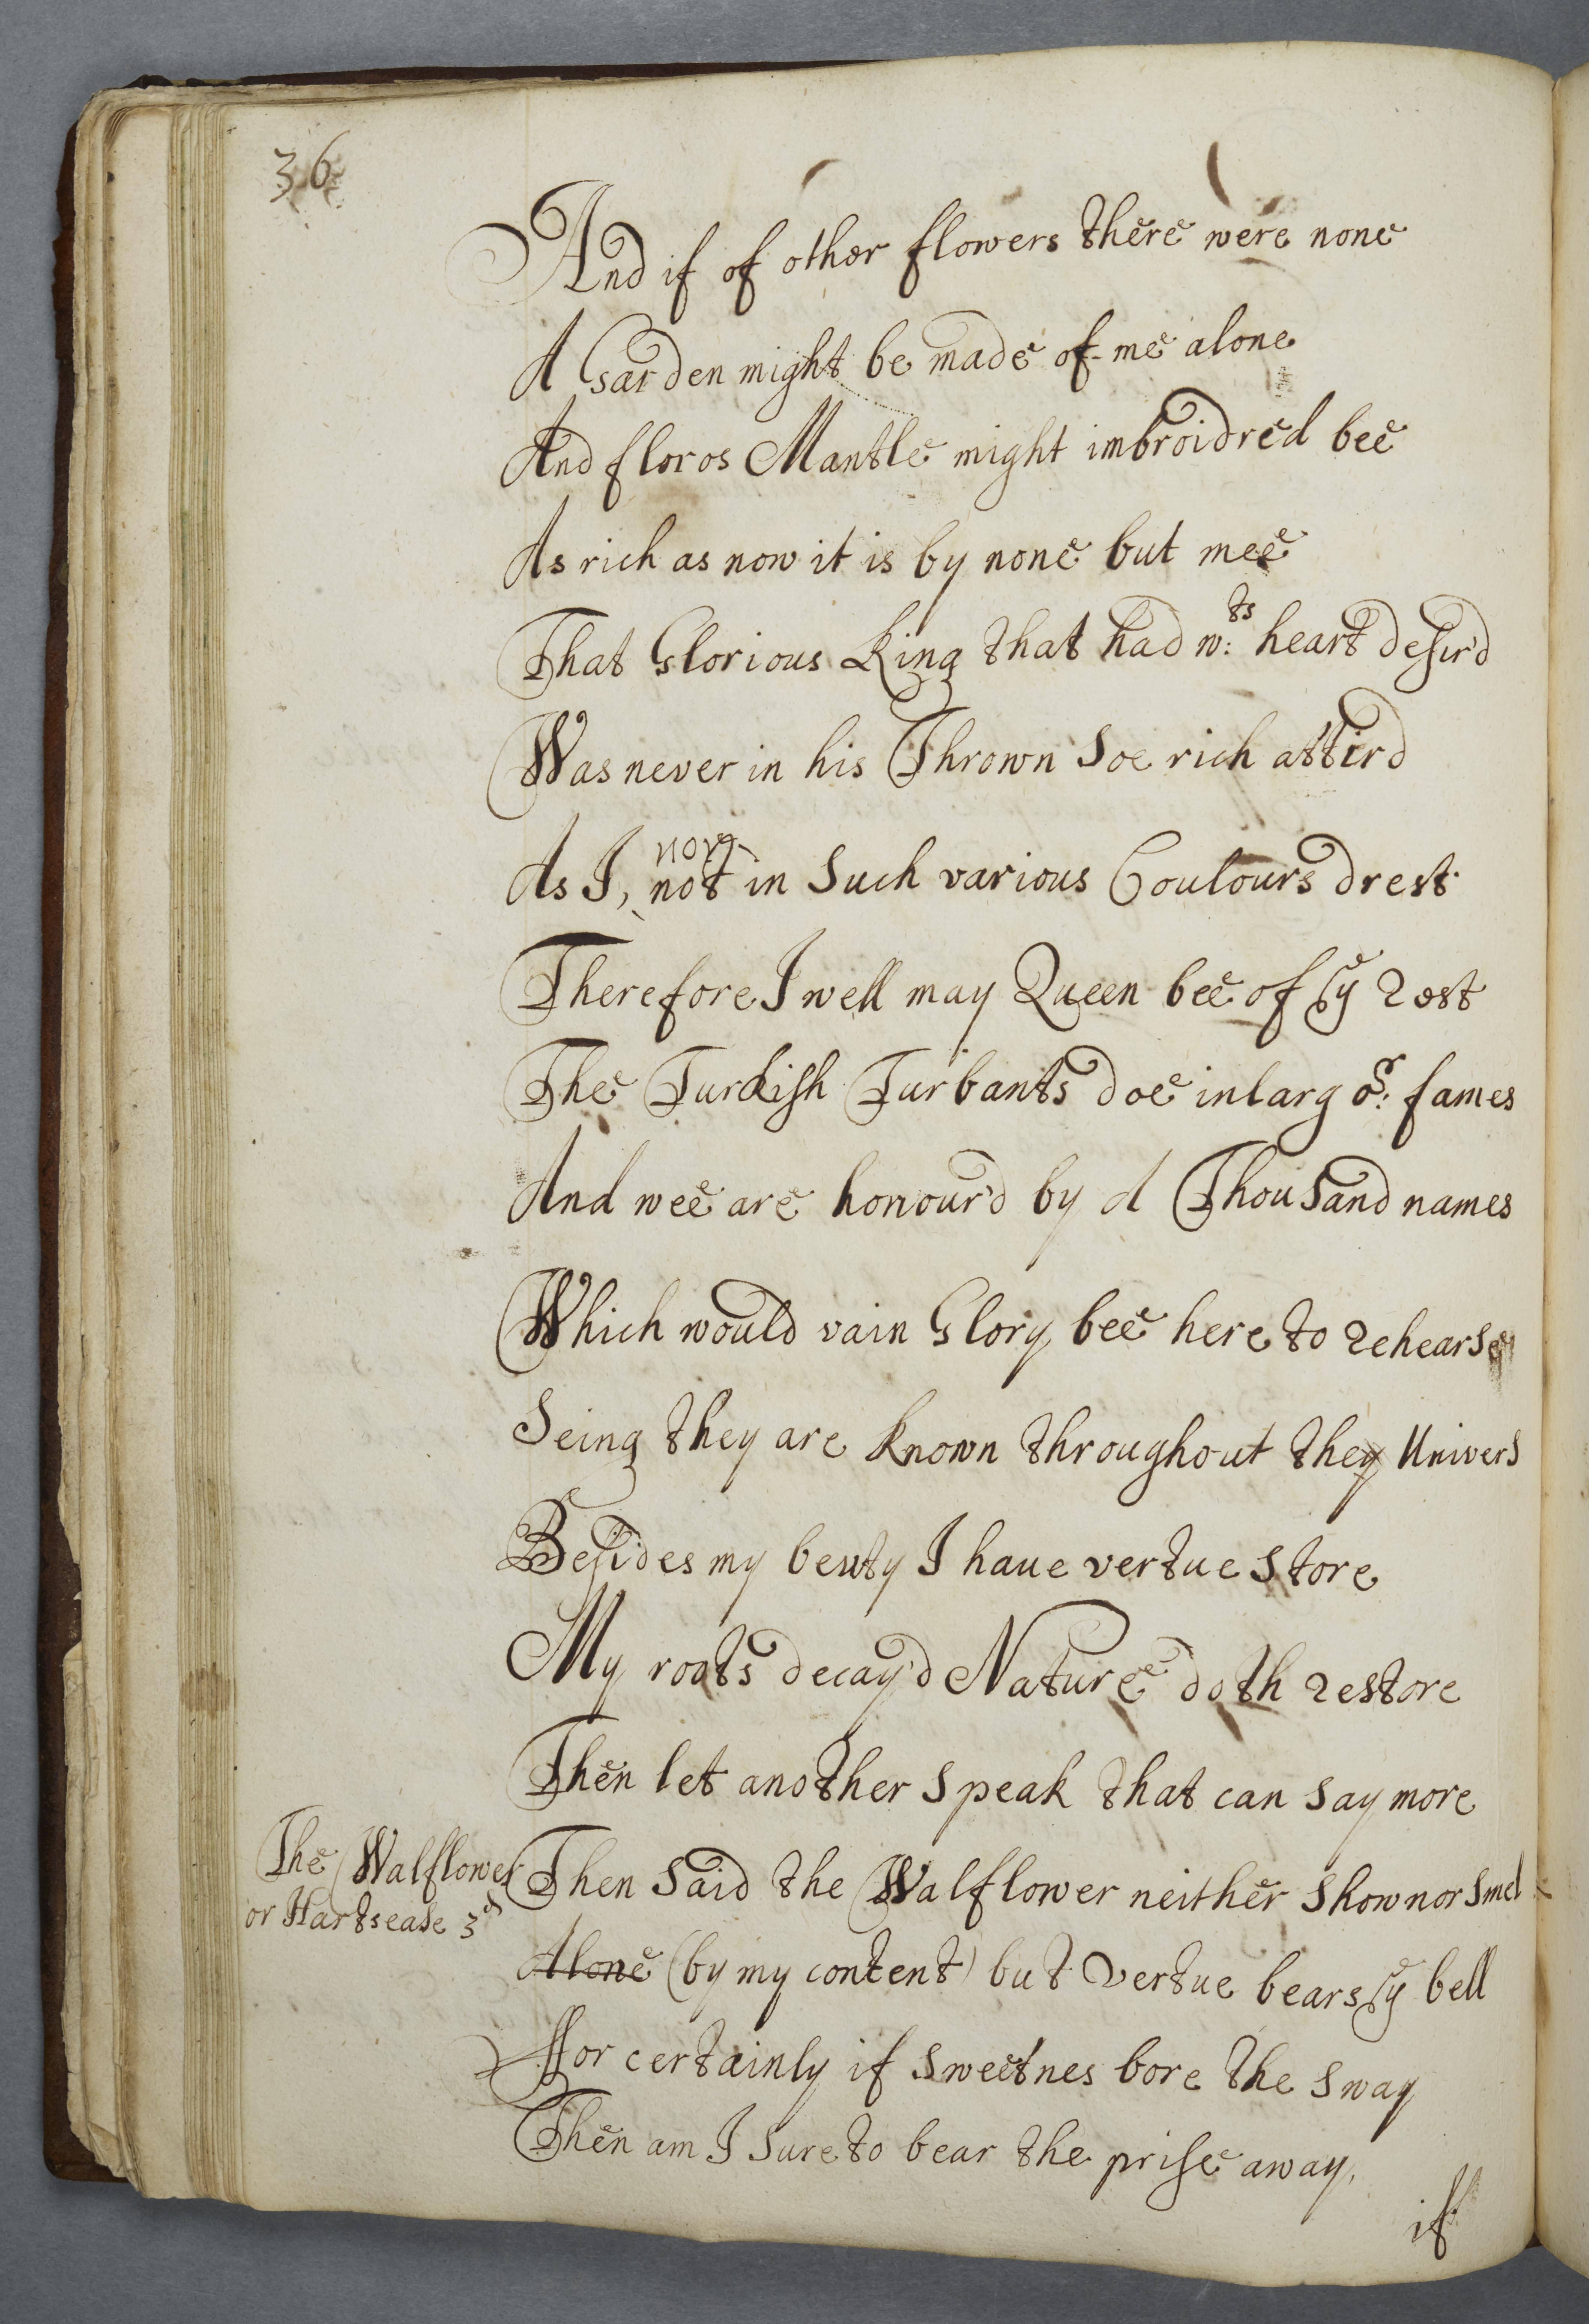 36
And if of other flowers there were none
A Garden might be made of me alone
And floros Mantle might imbroidred bee
As rich as now it is by none but mee
That Glorious King that had w:ts heart desir'd
Was never in his Thrown Soe rich attird
nor
As I, not in Such various Coulours drest
Therefore I well may Queen bee of ye Rest
The Turkish Turbants doe inlarg or: fames
And wee are honour'd by A Thousand names
Which would vain Glory bee here to Rehearse
Seing they are known throughout they Univers
Besides my beuty I haue vertue Store
My roots decay'd Nature doth Restore
Then let another Speak that can Say more
The Walflower
or Hartsease 3d
Then Said the Walflower neither Show nor Smel
Alone (by my content) but Vertue bears ye bell
ffor certainly if Sweetnes bore the Sway
Then am I Sure to bear the prise away.
if